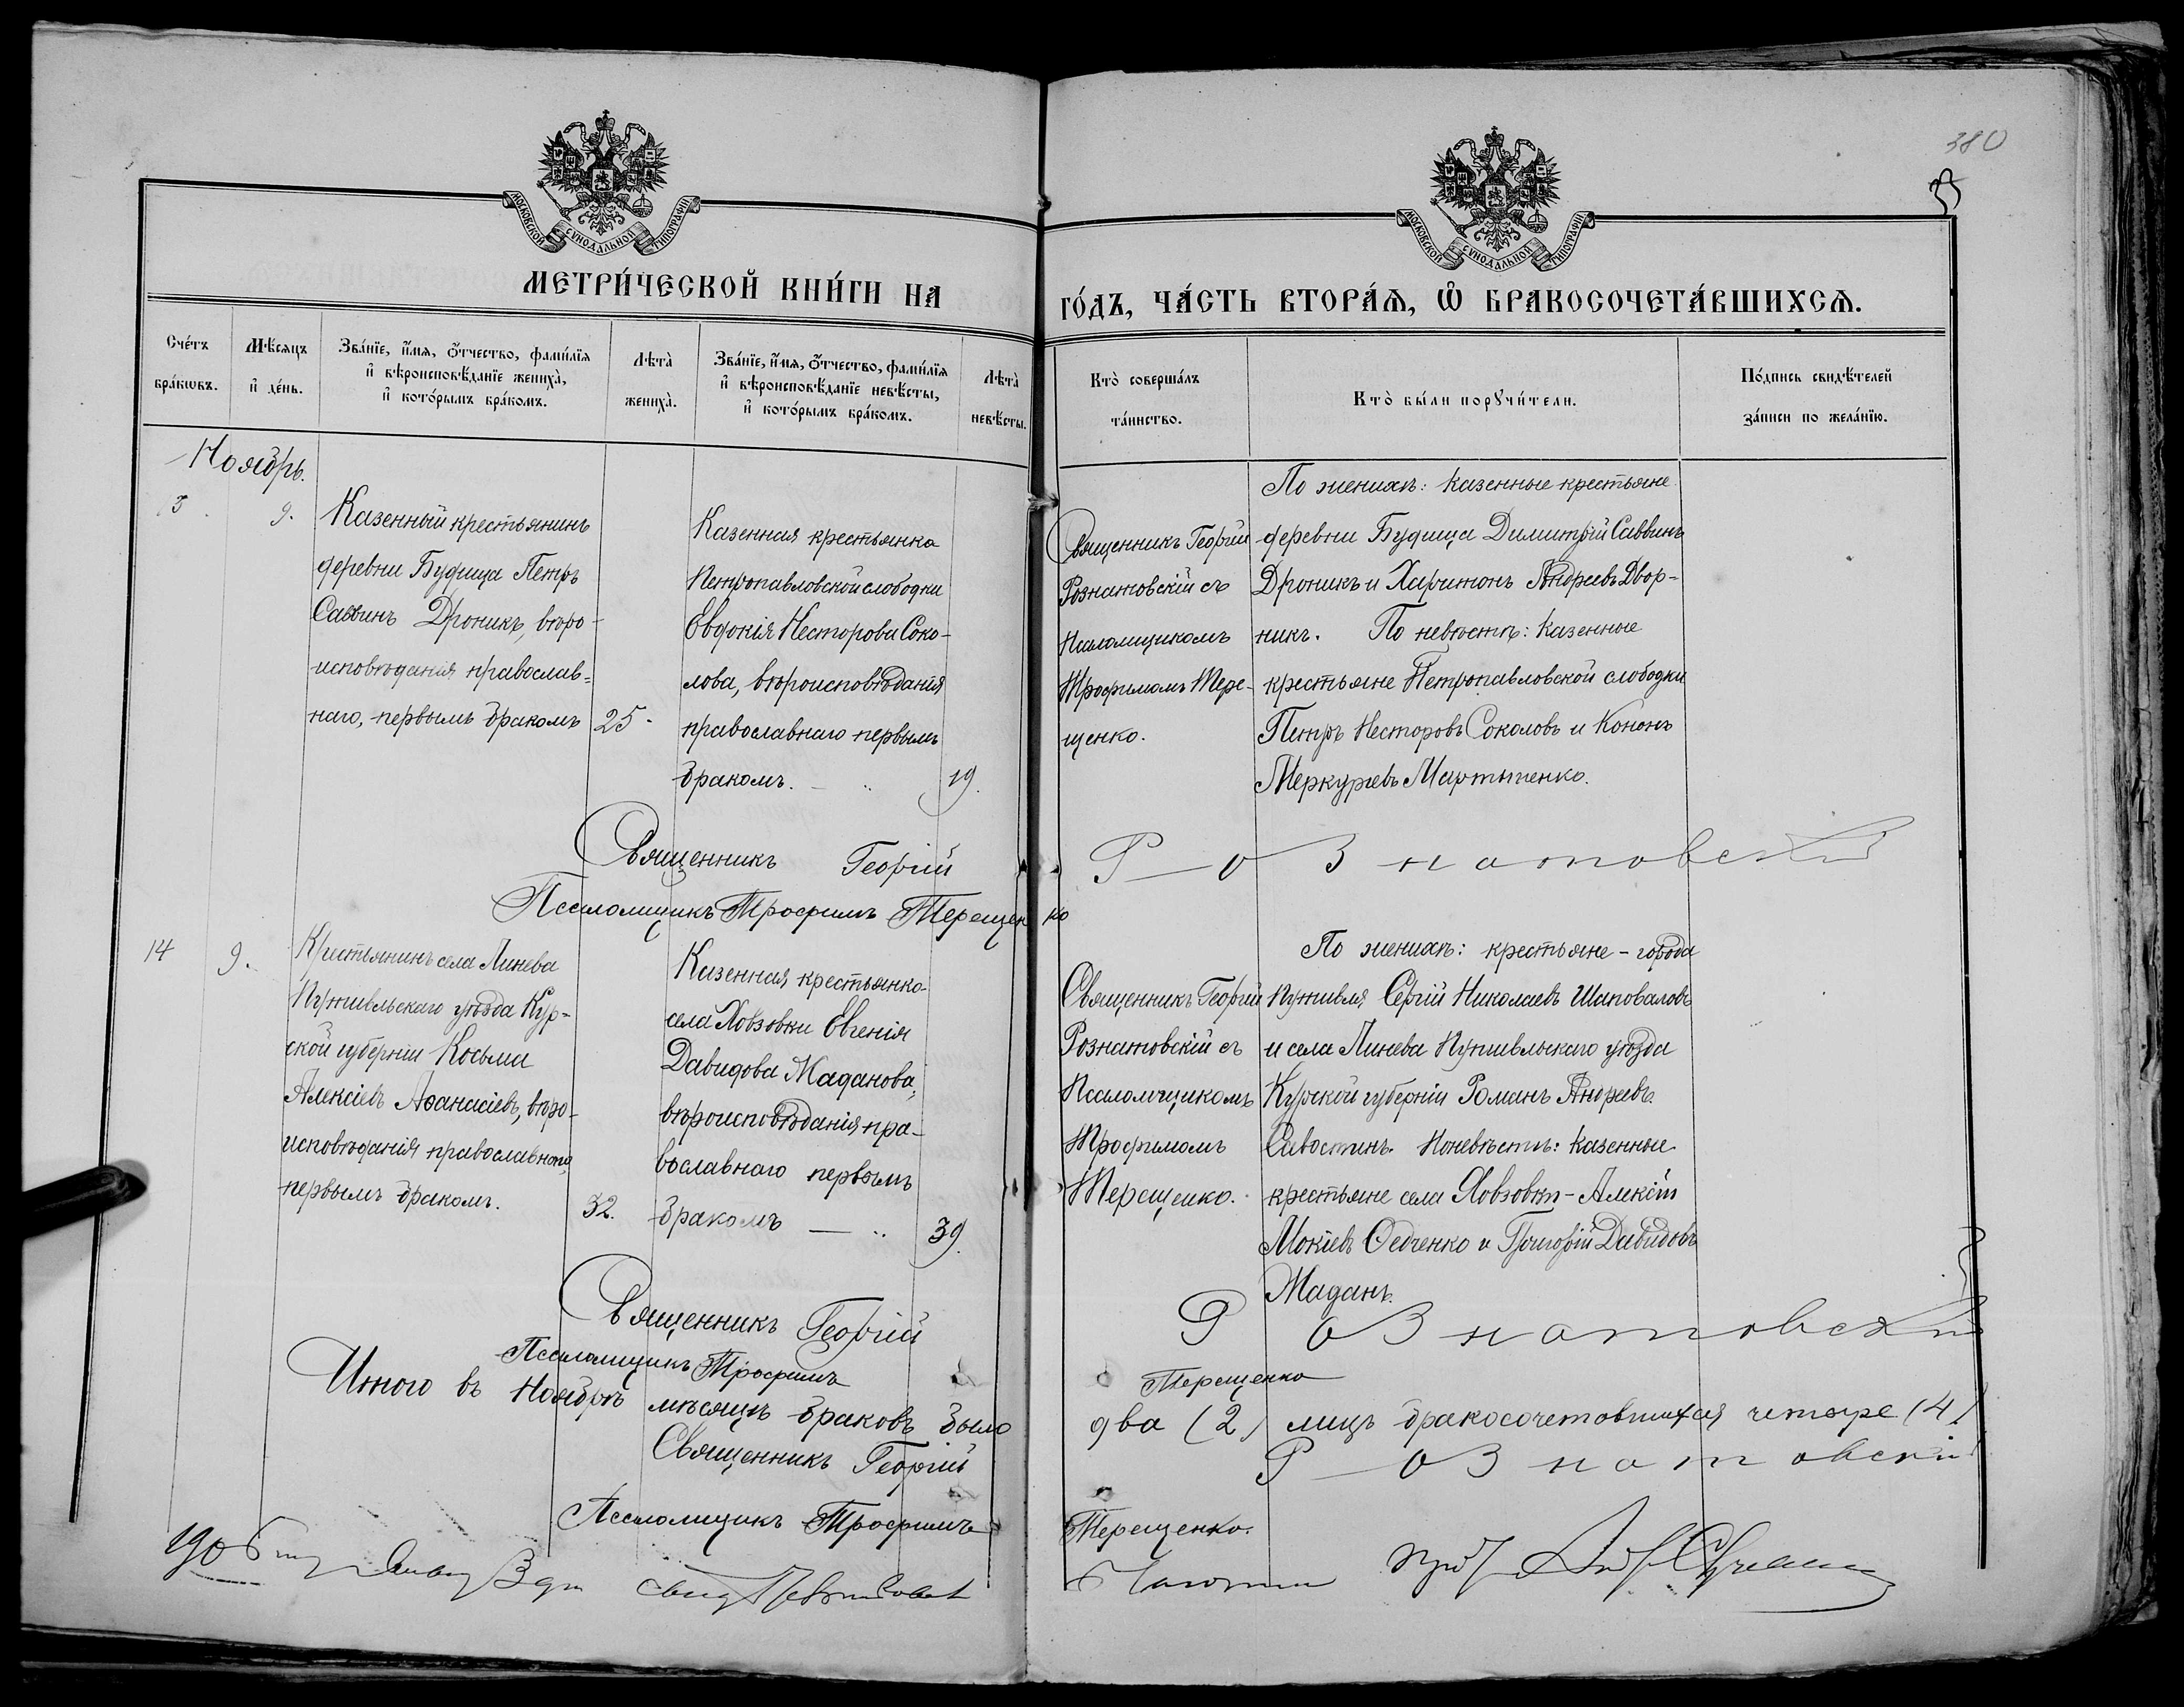 380
МОСКОВСКОЙ СУНОДАЛЬНОЙ ТИПОГРАФІИ
МОСКОВСКОЙ СУНОДАЛЬНОЙ ТИПОГРАФІИ
МЕТРИ́ЧЕСКОЙ КНИ́ГИ НА
ГО́ДЪ, ЧА́СТЬ ВТОРА́Я, Ѿ БРАКОСОЧЕТА́ВШИХСЯ.
Сче́тъ бра́кѡвъ.
Мѣ́сяцъ и҆ де́нь.
Зва́нїе, и҆́мя, ѻ҆́тчество, фами́лїя
и҆ вѣроисповѣ́данїе жениха̀,
и҆ кото́рымъ бра́комъ.
Лѣта̀ жениха̀.
Зва́нїе, и҆́мя, ѻ҆́тчество, фами́лїя
и҆ вѣроисповѣ́данїе невѣ́сты,
и҆ кото́рымъ бра́комъ.
Лѣта̀ невѣ́сты.
Кто̀ соверша́лъ
та́инство.
Кто̀ бы́ли порꙋчи́тели.
По́дпись свидѣ́телей
за́писи по жела́нїю.
Ноябрь.
9.
Казенный крестьянинъ
деревни Будища Петръ
Саввинъ Дроникъ, вѣро-
исповѣданія православ=
наго, первымъ бракомъ
25.
Казенная крестьянка
Петропавловской слободки
Евдокія Несторова Соко-
лова, вѣроисповѣданія
православнаго первымъ
бракомъ.
19.
Священникъ Георгій
Рознатовскій съ
Псаломщикомъ
Трофимомъ Тере-
щенко.
По женихѣ: казенные крестьяне
деревни Будища Димитрій Саввинъ
Дроникъ и Харитонъ Андреевъ Двор-
никъ. По невѣстѣ: казенные
крестьяне Петропавловской слободки
Петръ Несторовъ Соколовъ и Кононъ
Меркурьевъ Мартыненко.
Священникъ Георгій Рознатовскій
Псаломщикъ Трофимъ Терещенко
14
9.
Крестьянинъ села Линева
Путивльскаго уѣзда Кур-
ской губерніи Косьма
Алексіевъ Аѳанасіевъ, вѣро-
исповѣданія православнаго,
первымъ бракомъ.
32.
Казенная крестьянка
села Ховзовки Евгенія
Давидова Жаданова,
вѣроисповѣданія пра-
вославнаго первымъ
бракомъ
39.
Священникъ Георгій
Рознатовскій съ
Псаломщикомъ
Трофимомъ
Терещенко.
По женихѣ: крестьяне - города
Путивля Сергій Николаевъ Шаповаловъ
и села Линева Путивльскаго уѣзда
Курской губерніи Романъ Андреевъ
Савостинъ. По невѣстѣ: казенные
крестьяне села Ховзовки - Алексій
Мокіевъ Ѳедченко и Григорій Давидовъ
Жаданъ.
Священникъ Георгій Рознатовскій
Псаломщикъ Трофимъ Терещенко
Итого въ Ноябрѣ мѣсяцѣ браковъ было два (2) лицъ бракосочетавшихся четыре (4)
Священникъ Георгій Рознатовскій
Псаломщикъ Трофимъ Терещенко.